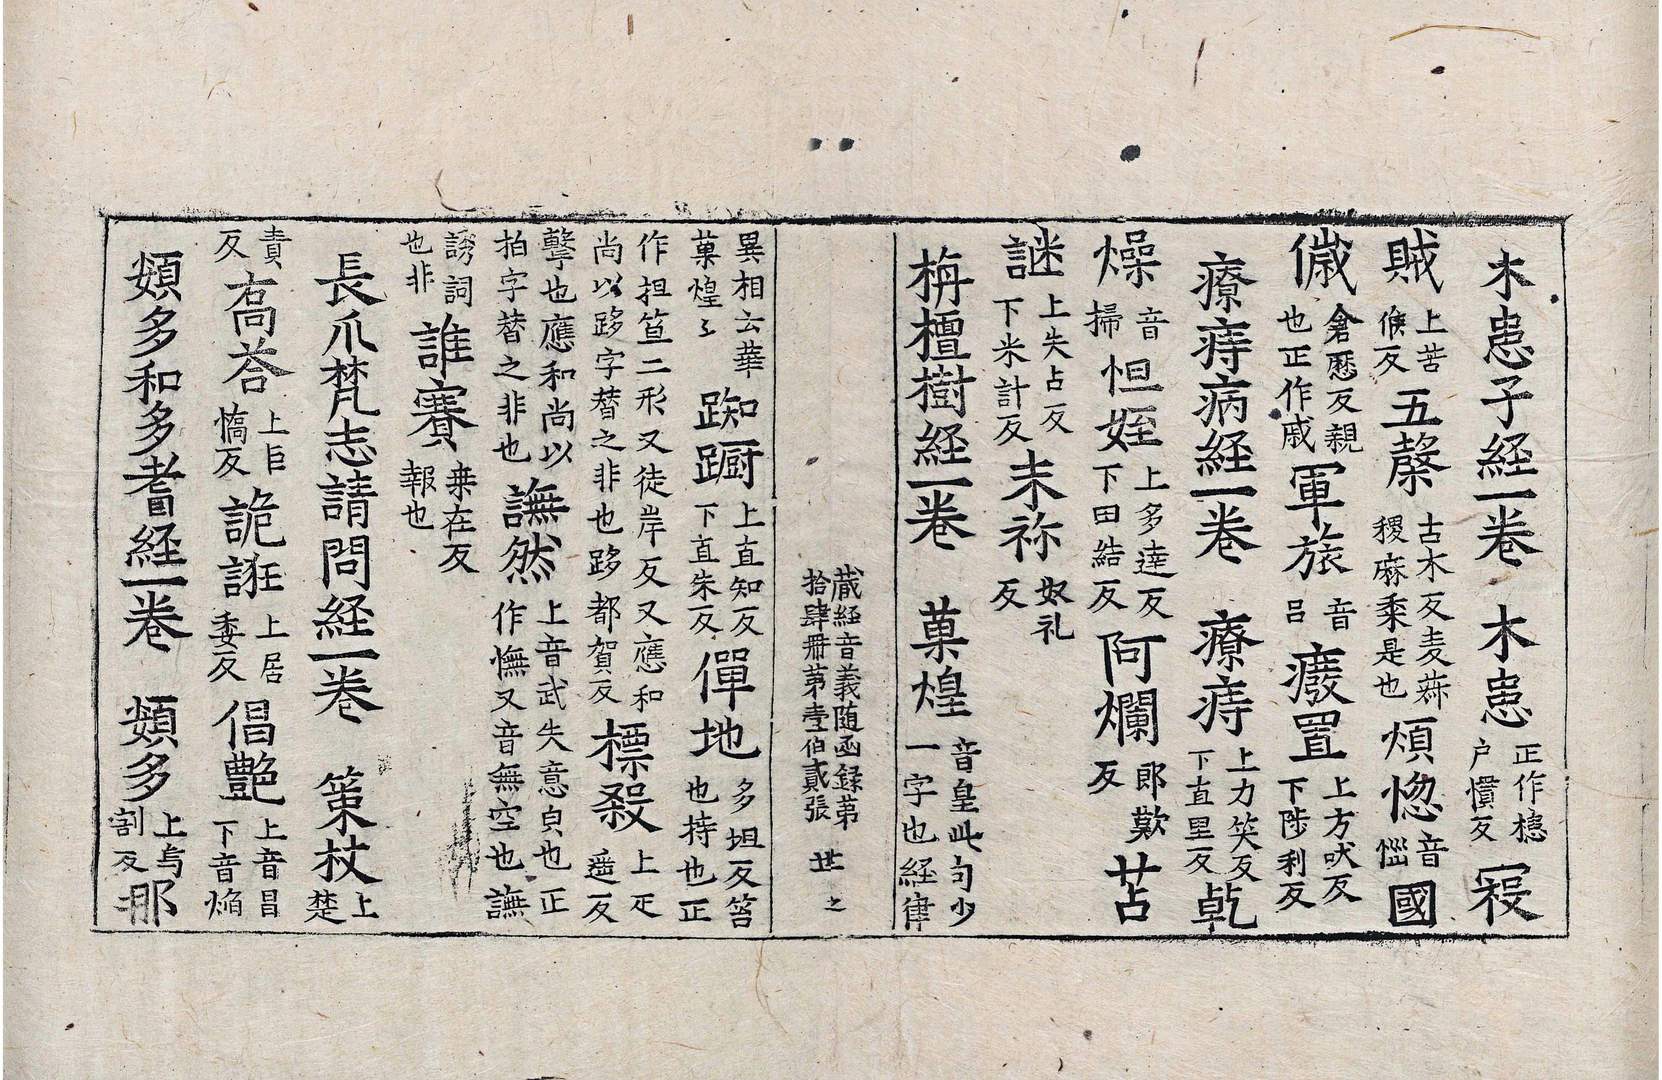 木患子経一卷　木患正作槵户慣反㝛
賊上苦候反五㲉古木反麦𪎭稷麻黍是也煩惚音惱國
㒕倉歷反親也正作戚軍旅音吕癈置上方吠反下陟利反
療痔病経一卷　療痔上力笑反下直里反乾
燥音掃怛姪上多達反下田結反阿爛郎歎反苫
謎上失占反下米計反末祢奴礼反
栴檀樹経一卷　菓煌音皇此句少一字也経律
藏経音義随函録第拾肆冊第壹伯貳張　世之
異相云華菓煌〻踟蹰上直知反下直朱反僤地多坦反笞也持也正
作担笪二形又徒岸反又應和尚以跢字替之非也跢都賀反摽殺上疋遥反
擊也應和尚以拍字替之非也譕然上音武失意皃也正作憮又音無空也譕
誘詞也非誰賽桒在反報也
長爪梵志請問経一卷　策杖上楚
責反高荅上巨憍反詭誑上居委反倡艶上音昌下音焔
頞多和多耆経一卷　頞多上烏割反那